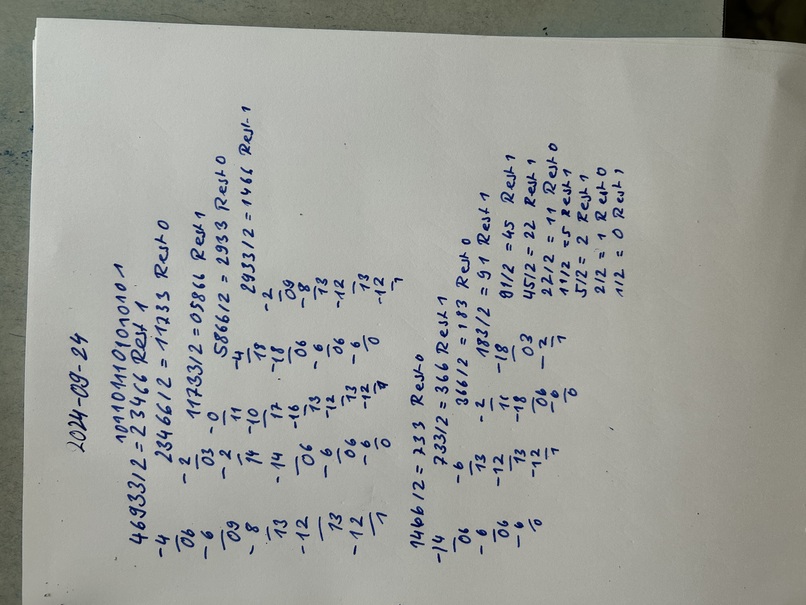 2024-09-24
1011011101010101
46933/2 = 23466 Rest 1
-4
06
-6
09
-8
13
-12
13
-12
1
23466/2 = 11733 Rest 0
-2
03
-2
14
-14
06
-6
06
-6
0
11733/2 = 05866 Rest 1
-0
11
-10
17
-16
13
-12
13
-12
1
5866/2 = 2933 Rest 0
-4
18
-18
06
-6
06
-6
0
2933/2 = 1466 Rest 1
-2
09
-8
13
-12
13
-12
1
1466/2 = 733 Rest 0
-14
06
-6
06
-6
0
733/2 = 366 Rest 1
-6
13
-12
13
-12
1
366/2 = 183 Rest 0
-2
-18
06
-6
0
183/2 = 91 Rest 1
-18
03
-2
1
91/2 = 45 Rest 1
45/2 = 22 Rest 1
22/2 = 11 Rest 0
11/2 = 5 Rest 1
5/2 = 2 Rest 1
2/2 = 1 Rest 0
1/2 = 0 Rest 1